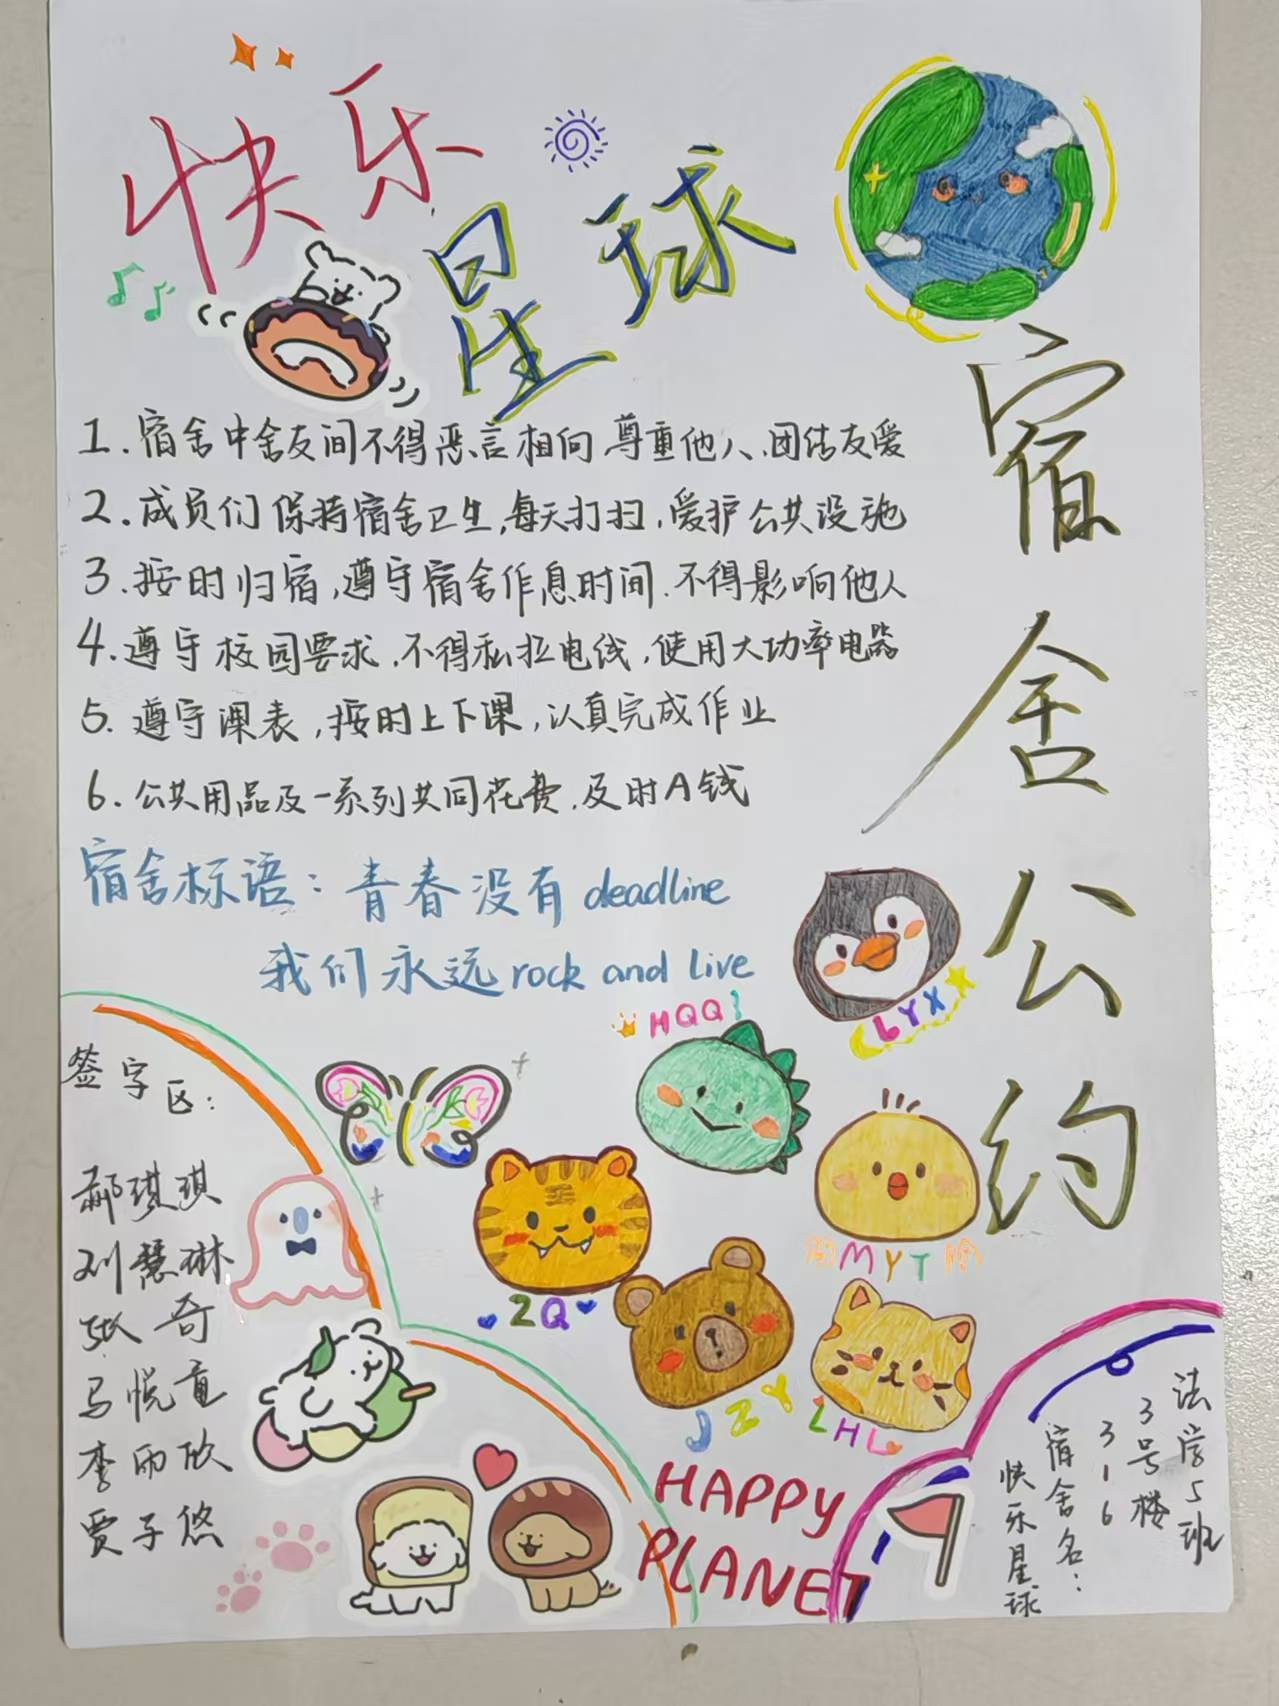 快乐
星球
宿舍公约
1.宿舍中舍友间不得恶言相向,尊重他人、团结友爱
2.成员们保持宿舍卫生,每天打扫,爱护公共设施
3.按时归宿,遵守宿舍作息时间.不得影响他人
4.遵守校园要求,不得私拉电线,使用大功率电器
5.遵守课表,按时上下课,认真完成作业
6.公共用品及一系列共同花费,及时A钱
宿舍标语:青春没有deadline
我们永远rock and live
LYXX
HQQ
MYT
ZQ
JZY
LHL
签字区:
郝琪琪
刘慧琳
张奇
马悦童
李雨欣
贾子悠
HAPPY
PLANET
法学5班
3号楼
316
宿舍名:
快乐星球